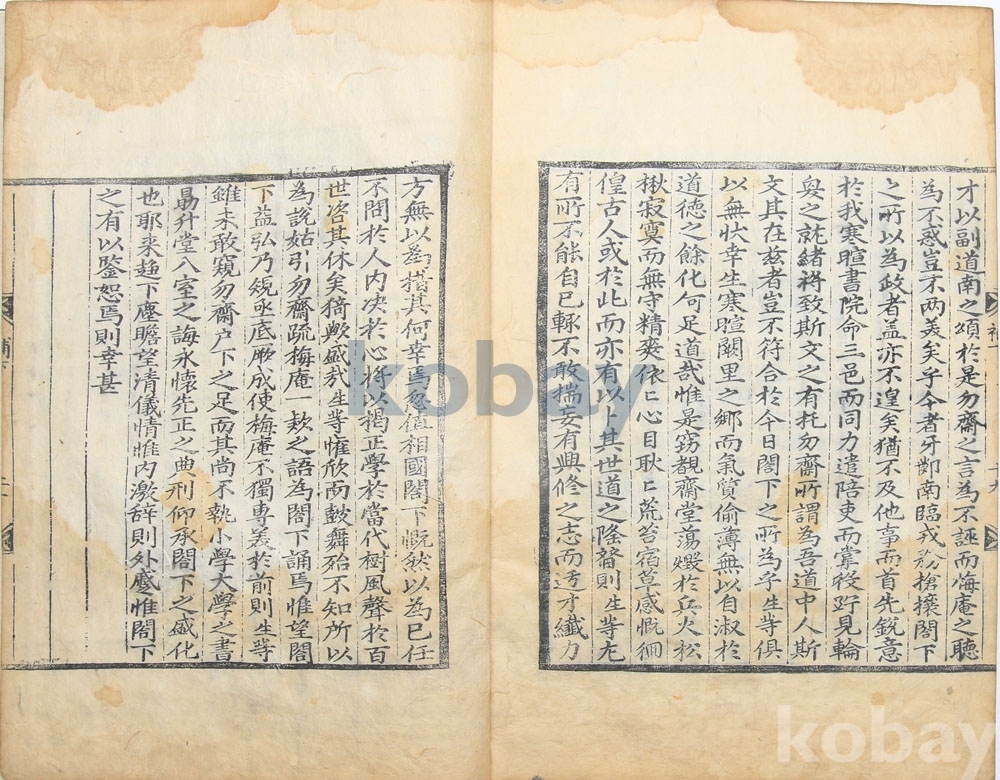 才以副道南之頌於是勿齋之言爲不誣而悔庵之聽
爲不惑豈不兩美矣乎今者牙鄁南臨戎務搶攘閤下
之所以爲政者盖亦不遑矣猶不及他事而首先銳意
於我寒暄書院命三邑而同力遣陪吏而掌役貯見輪
奐之就緒將致斯文之有托勿齋所謂爲吾道中人斯
文其在茲者豈不符合於今日閤下之所爲乎生等俱
以無狀幸生寒暄闕里之鄕而氣質偷薄無以自淑於
道德之餘化何足道哉惟是竊覩齋堂蕩燬於兵火松
楸寂寞而無守精爽依〻心目耿〻荒苔宿草感慨徊
徨古人或於此而亦有以卜其世道之隆替則生等尤
有所不能自已輒不敢揣妄有興修之志而諝才纖力
方無以爲措其何幸焉忽値相國閤下慨然以爲已任
不問於人內决於心將以揭正學於當代樹風聲於百
世咨其休矣猗歟盛哉生等懽欣而鼓舞殆不知所以
爲說姑引勿齋疏梅庵一欵之語爲閤下誦焉惟望閤
下益弘乃䂓亟底厥成使梅庵不獨專美於前則生等
雖未敢窺勿齋户下之足而其尙不執小學大學之書
昜升堂入室之誨永懷先正之典刑仰承閤下之盛化
也耶來趍下塵瞻望清儀情惟內激辞則外蹙惟閤下
之有以鑒恕焉則幸甚
kobay
kobay